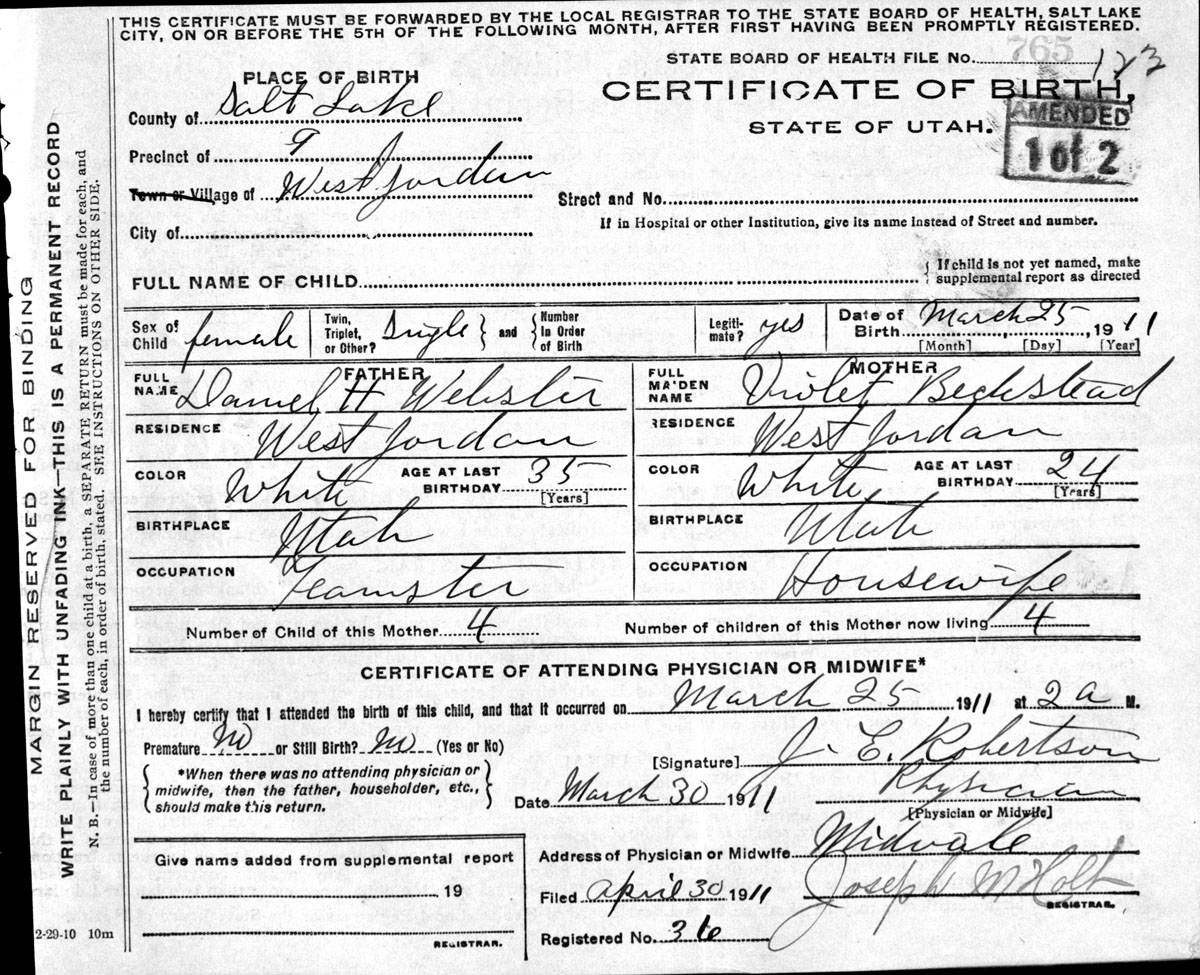 THIS CERTIFICATE MUST BE FORWARDED BY THE LOCAL REGISTRAR TO THE STATE BOARD OF HEALTH, SALT LAKE
CITY, ON OR BEFORE THE 5TH OF THE FOLLOWING MONTH, AFTER FIRST HAVING BEEN PROMPTLY REGISTERED.
765
STATE BOARD OF HEALTH FILE No. 123
PLACE OF BIRTH
CERTIFICATE OF BIRTH,
STATE OF UTAH.
AMENDED
1 of 2
County of Salt Lake
Precinct of 9
Town or Village of West Jordan
Street and No.
City of
If in Hospital or other Institution, give its name instead of Street and number.
FULL NAME OF CHILD
{ If child is not yet named, make
supplemental report as directed
Sex of Child female
Twin, Triplet, or Other? Single } and { Number In Order of Birth
Legiti-mate? yes
Date of Birth March 25, 1911
[Month] [Day] [Year]
FATHER
FULL NAME Daniel H Webster
RESIDENCE West Jordan
COLOR White AGE AT LAST BIRTHDAY 35 [Years]
BIRTHPLACE Utah
OCCUPATION Teamster
MOTHER
FULL MAIDEN NAME Violet Beckstead
RESIDENCE West Jordan
COLOR White AGE AT LAST BIRTHDAY 24 [Years]
BIRTHPLACE Utah
OCCUPATION Housewife
Number of Child of this Mother 4 Number of children of this Mother now living 4
CERTIFICATE OF ATTENDING PHYSICIAN OR MIDWIFE*
I hereby certify that I attended the birth of this child, and that it occurred on March 25 1911 at 2 a M.
Premature No or Still Birth? No (Yes or No)
{ *When there was no attending physician or
midwife, then the father, householder, etc.,
should make this return. }
[Signature] J. E. Robertson
Physician
[Physician or Midwife]
Date March 30 1911
Address of Physician or Midwife Midvale
Filed April 30 1911 Joseph M Holt
REGISTRAR.
Registered No. 36
Give name added from supplemental report
19
REGISTRAR.
2-29-10 10m
MARGIN RESERVED FOR BINDING
WRITE PLAINLY WITH UNFADING INK—THIS IS A PERMANENT RECORD
N. B.—In case of more than one child at a birth, a SEPARATE RETURN must be made for each, and
the number of each, in order of birth, stated. SEE INSTRUCTIONS ON OTHER SIDE.